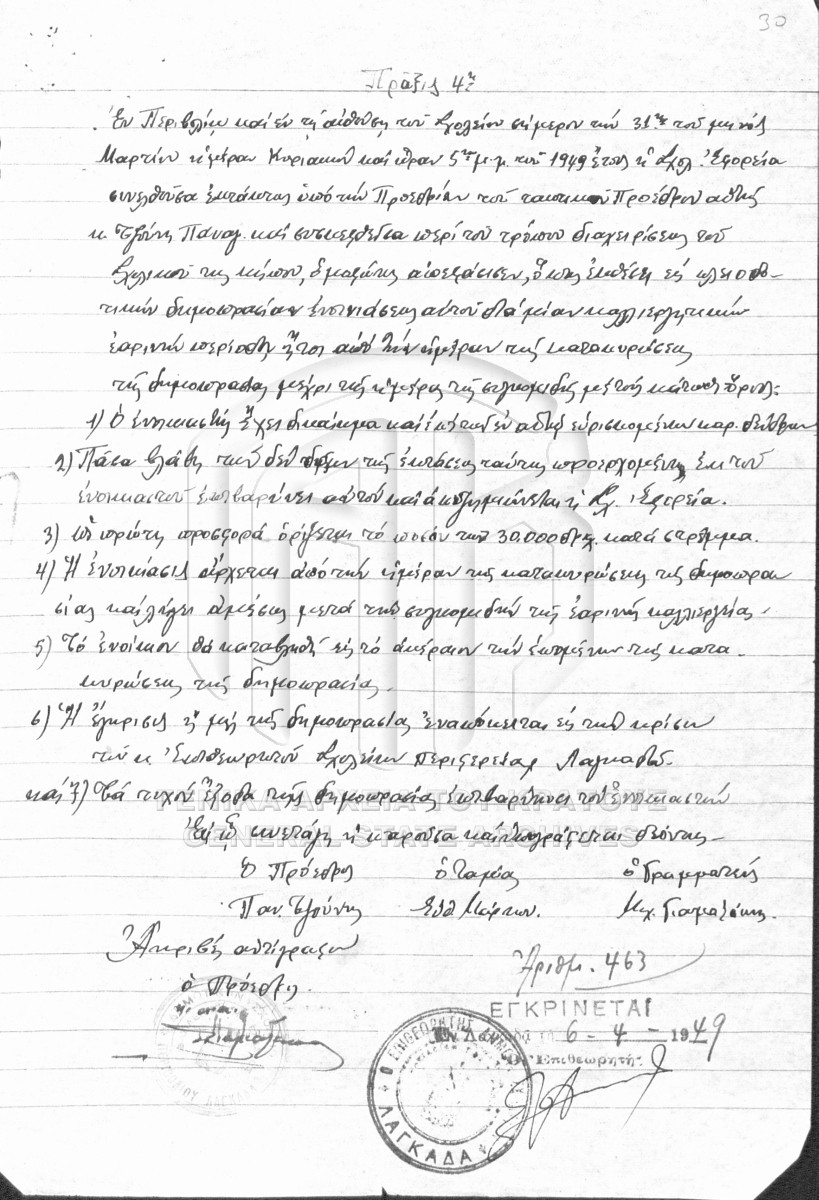 30
Πρᾶξις 4η
Ἐν Περιβολίῳ καὶ ἐν τῇ αἰθούσῃ τοῦ Σχολείου σήμερον τὴν 31ην τοῦ μηνὸς
Μαρτίου ἡμέραν Κυριακὴν καὶ ὥραν 5ην μ.μ. τοῦ 1949 ἔτους ἡ Σχολ. Ἐφορεία
συνελθοῦσα ἐκτάκτως ὑπὸ τὴν Προεδρίαν τοῦ τακτικοῦ Προέδρου αὐτῆς
κ. Τζούνη Παναγ. καὶ συσκεφθεῖσα περὶ τοῦ τρόπου διαχειρίσεως τοῦ
Σχολικοῦ της κήπου, ὁμοφώνως ἀπεφάσισεν, ὅπως ἐκθέσῃ εἰς πλειοδο-
τικὴν δημοπρασίαν ἐνοικιάσεως αὐτοῦ διὰ μίαν καλλιεργητικὴν
ἐαρινὴν περίοδον ἤτοι ἀπὸ τὴν ἡμέραν τῆς κατακυρώσεως
τῆς δημοπρασίας μέχρι τῆς ἡμέρας τῆς συγκομιδῆς μὲ τοὺς κάτωθι ὅρους:
1) Ὁ ἐνοικιαστὴς ἔχει δικαίωμα καὶ ἐπὶ τῶν ἐν αὐτῷ εὑρισκομένων καρ. δένδρων
2) Πᾶσα βλάβη τῶν δένδρων τῆς ἐκτάσεως ταύτης προερχομένη ἐκ τοῦ
ἐνοικιαστοῦ ἐπιβαρύνει αὐτὸν καὶ ἀποζημιώνεται ἡ Σχ. Ἐφορεία.
3) Ὡς πρώτη προσφορὰ ὁρίζεται τὸ ποσὸν τῶν 30.000 δρχ. κατὰ στρέμμα.
4) Ἡ ἐνοικίασις ἄρχεται ἀπὸ τὴν ἡμέραν τῆς κατακυρώσεως τῆς δημοπρα
σίας καὶ λήγει ἀμέσως μετὰ τὴν συγκομιδὴν τῆς ἐαρινῆς καλλιεργείας.
5) Τὸ ἐνοίκιον θὰ καταβληθῇ εἰς τὸ ἀκέραιον τὴν ἑπομένην τῆς κατα-
κυρώσεως τῆς δημοπρασίας.
6) Ἡ ἔγκρισις ἢ μὴ τῆς δημοπρασίας ἐναπόκειται εἰς τὴν κρίσιν
τοῦ κ. Ἐπιθεωρητοῦ Σχολείων Περιφερείας Λαγκαδᾶ.
καὶ 7) Τὰ τυχὸν ἔξοδα τῆς δημοπρασίας ἐπιβαρύνουν τὸν ἐνοικιαστὴν
ΓΕΝΙΚΑ ΑΡΧΕΙΑ ΤΟΥ ΚΡΑΤΟΥΣ
GENERAL STATE ARCHIVES
Ἐφ' ᾧ συνετάγη ἡ παροῦσα καὶ ὑπογράφεται δεόντως.
Ὁ Πρόεδρος ὁ Ταμίας ὁ Γραμματεὺς
Παν. Τζούνης Μάρκου. Μιχ. Γιαμαζάκης.
Ἀκριβὲς ἀντίγραφον
ὁ Πρόεδρος.
Ἀριθμ. 463
ΕΓΚΡΙΝΕΤΑΙ
6 - 4 - 1949
Ὁ Ἐπιθεωρητής
Ο ΕΠΙΘΕΩΡΗΤΗΣ
ΛΑΓΚΑΔΑ